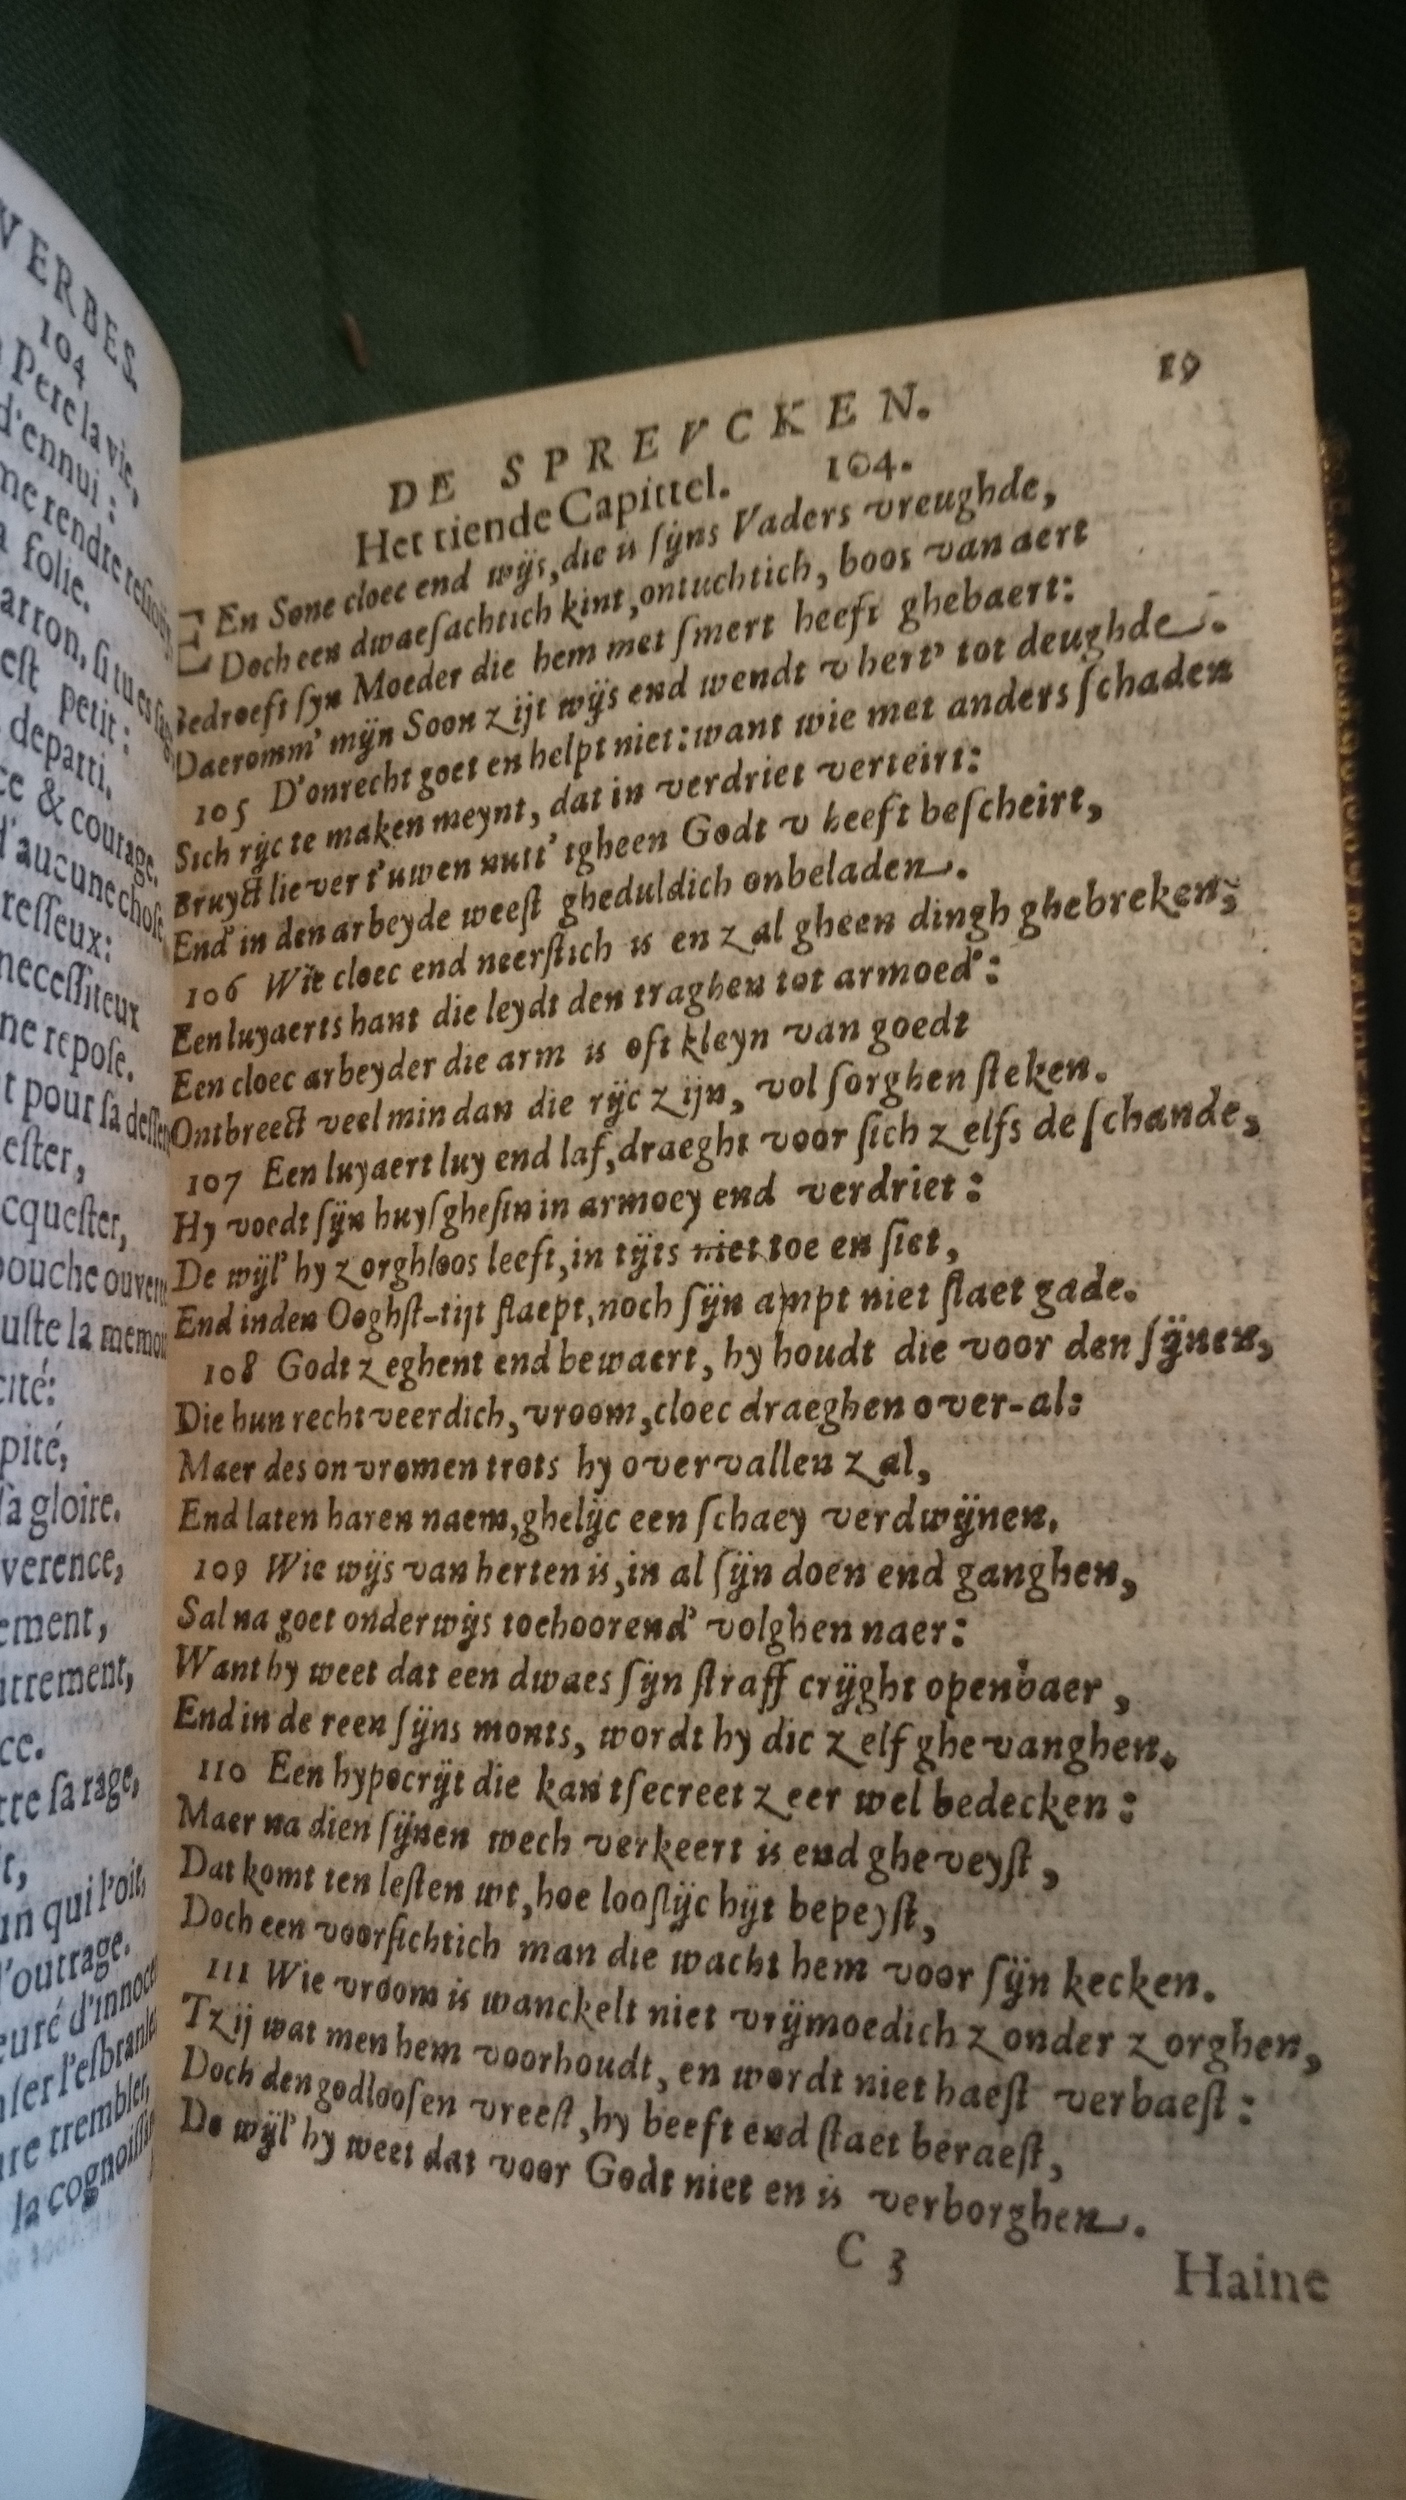 VERBES.
104
Pere la vie,
d'ennui:
me rendre
folie.
si tu es
est petit:
departi.
& courage.
d'aucune chose
resseux:
necessiteux
ne repose.
t pour sa
ester,
cquester,
bouche
uste la
cité:
pité,
sa gloire.
verence,
ement,
utrement,
ce.
tre sa rage,
t,
un qui l'oit,
l'outrage.
euré
trembler,
la
19
DE SPREVCKEN.
Het tiende Capittel. 104.
EEn Sone cloec end wijs, die is sÿns Vaders vreughde,
Doch een dwaesachtich kint, ontuchtich, boos van aert
Bedroeft sÿn Moeder die hem met smert heeft ghebaert:
Daeromm' mÿn Soon zijt wÿs end wendt v hert' tot deughde.
105 D'onrecht goet en helpt niet: want wie met anders schaden
Sich rÿc te maken meynt, dat in verdriet verteirt:
Bruyct liever t'uwen nutt' tgheen Godt v heeft bescheirt,
End' in den arbeyde weest gheduldich onbeladen.
106 Wie cloec end neerstich is en zal gheen dingh ghebreken;
Een luyaerts hant die leydt den traghen tot armoed':
Een cloec arbeyder die arm is oft kleyn van goedt
Ontbreect veel min dan die rÿc zijn, vol sorghen steken.
107 Een luyaert luy end laf, draeght voor sich zelfs de schande,
Hy voedt sÿn huysghesin in armoey end verdriet:
De wÿl' hy zorghloos leeft, in tÿts niet toe en siet,
End in den Ooghst-tijt slaept, noch sÿn ampt niet slaet gade.
108 Godt zeghent end bewaert, hy houdt die voor den sÿnen,
Die hun rechtveerdich, vroom, cloec draeghen over-al:
Maer des onvromen trots hy overvallen zal,
End laten haren naem, ghelÿc een schaey verdwÿnen.
109 Wie wÿs van herten is, in al sÿn doen end ganghen,
Sal na goet onderwÿs toehoorend' volghen naer:
Want hy weet dat een dwaes sÿn straff crÿght openbaer,
End in de reen sÿns monts, wordt hy dic zelf ghevanghen.
110 Een hypocrÿt die kan tsecreet zeer wel bedecken:
Maer na dien sÿnen wech verkeert is end gheveyst,
Dat komt ten lesten wt, hoe looslÿc hÿt bepeyst,
Doch een voorsichtich man die wacht hem voor sÿn kecken.
111 Wie vroom is wanckelt niet vrÿmoedich zonder zorghen,
Tzij wat men hem voorhoudt, en wordt niet haest verbaest:
Doch den godloosen vreest, hy beeft end staet beraest,
De wÿl' hy weet dat voor Godt niet en is verborghen.
C 3
Haine